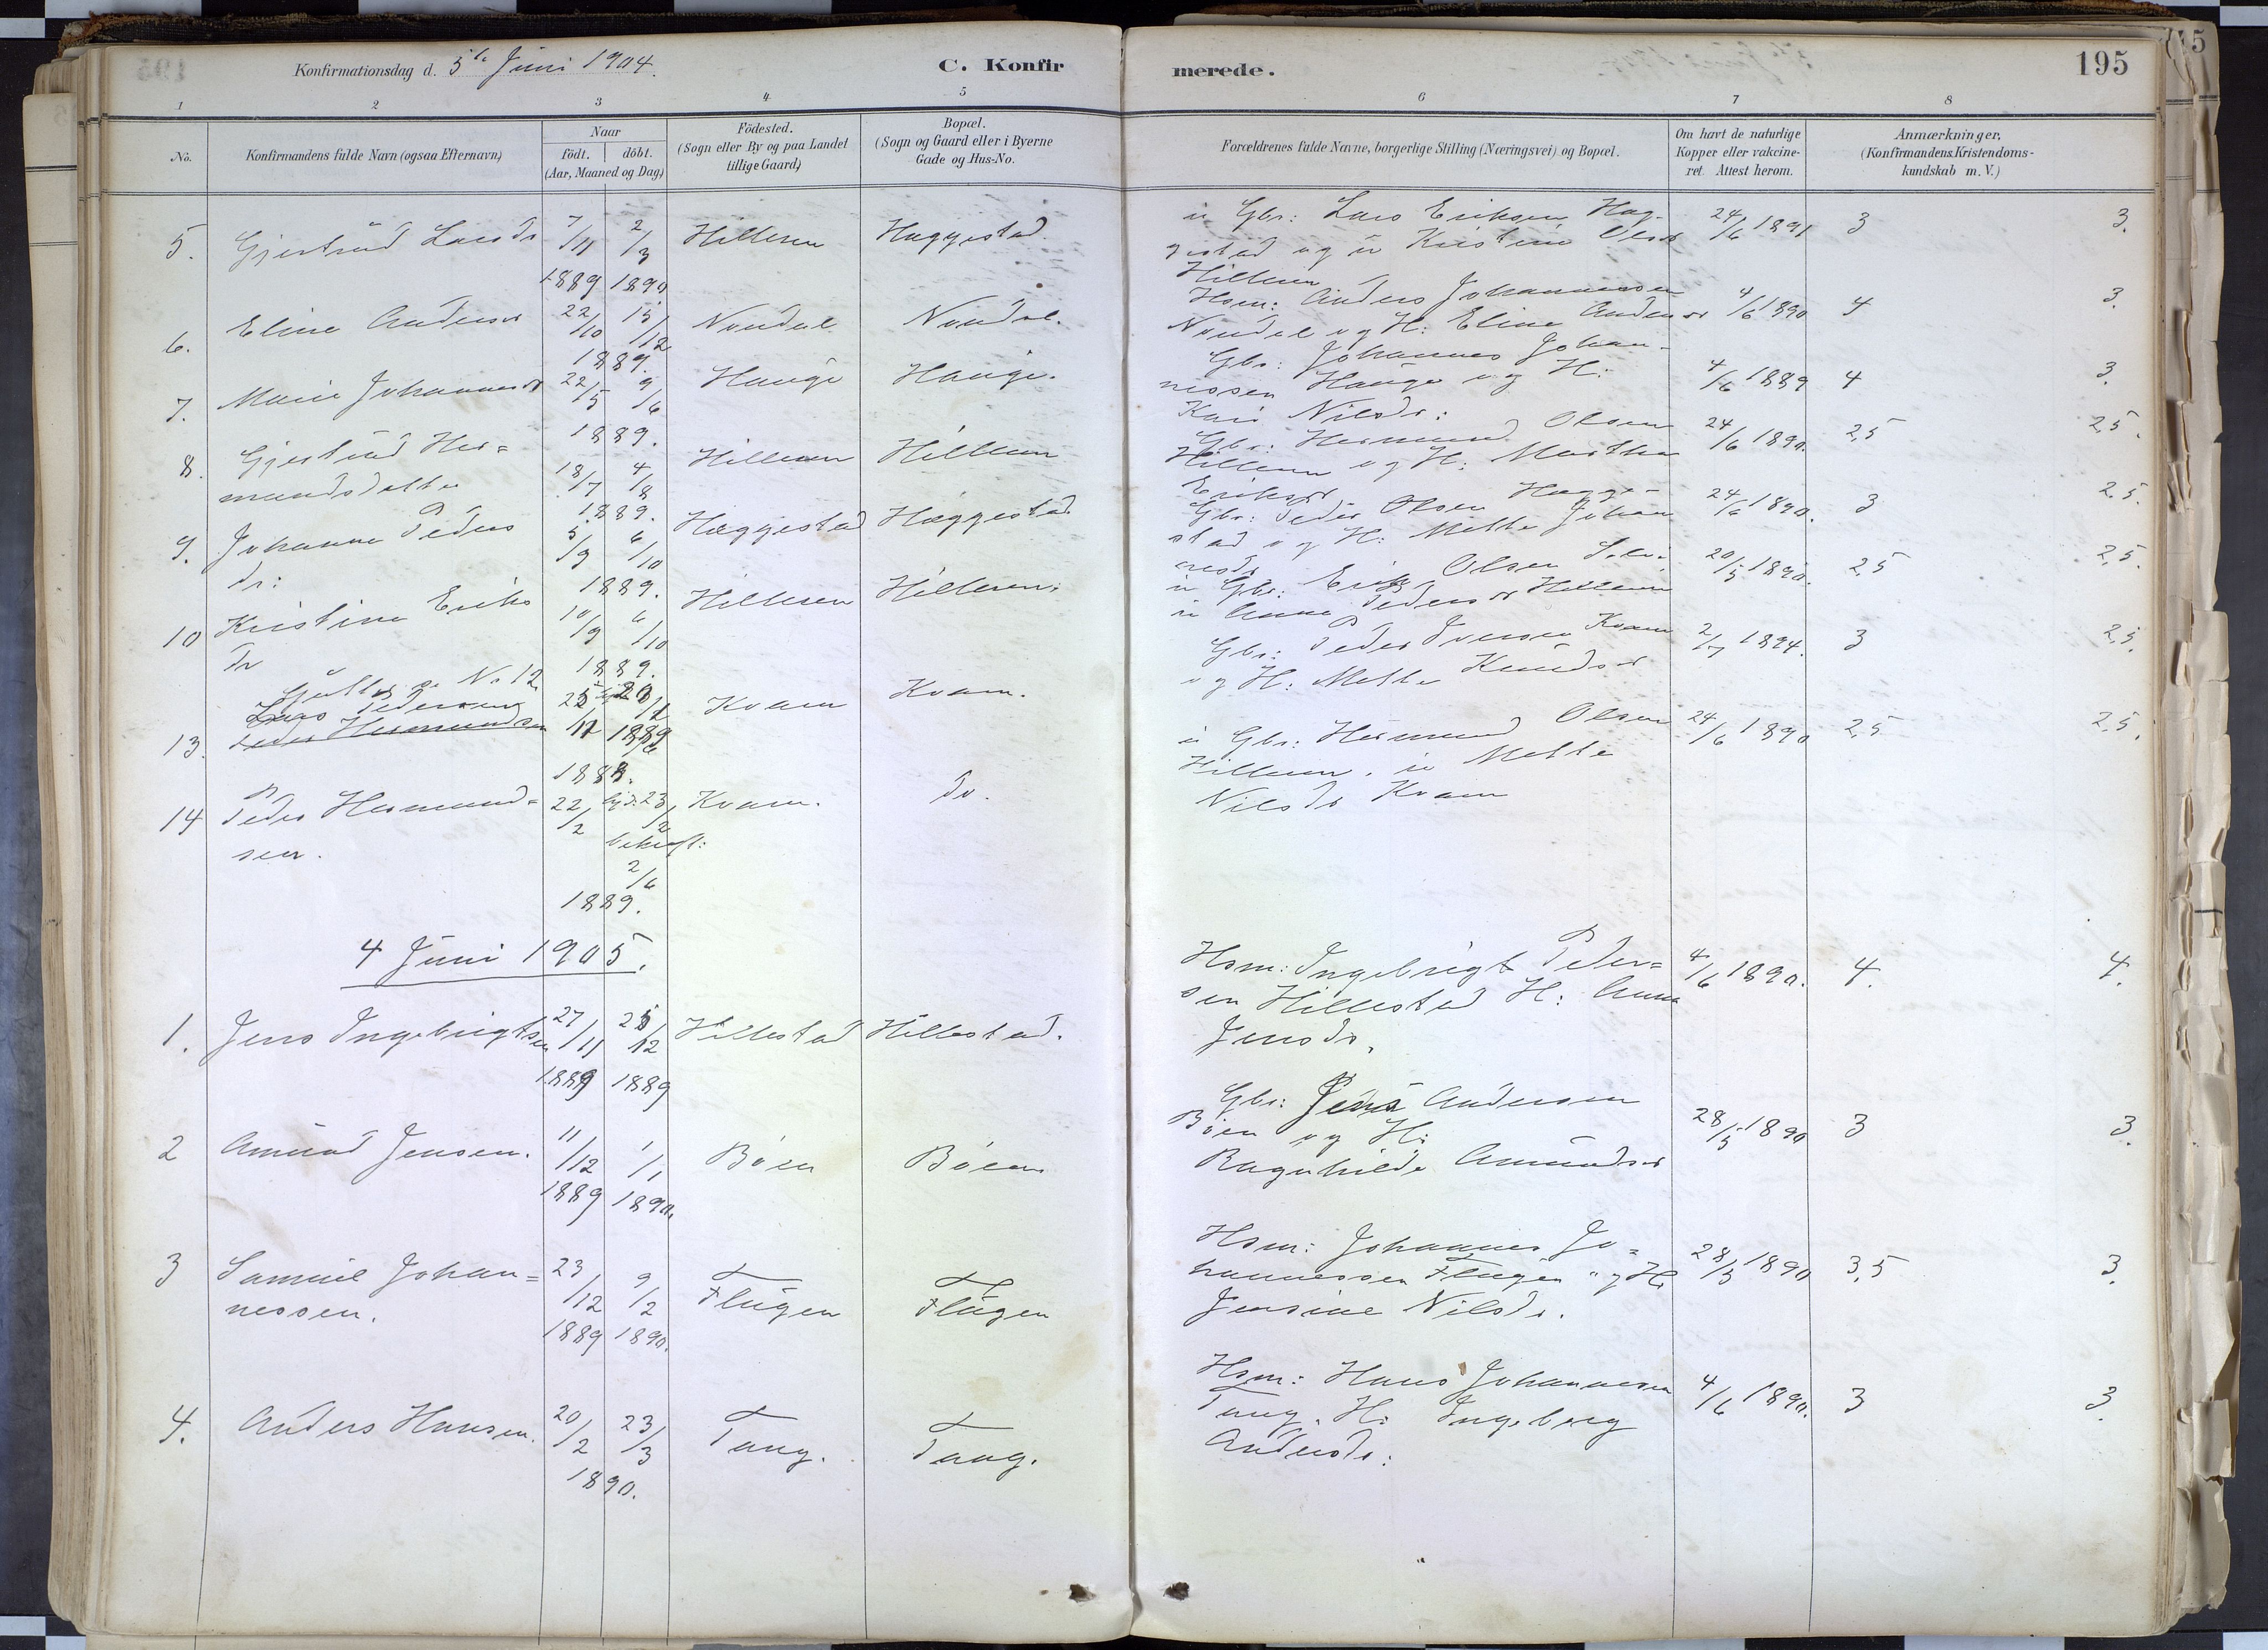 Konfirmationsdag d. 5te Juni 1904.
C. Konfirmerede.
195
1 2 3 4 5 6 7 8
No.
Konfirmandens fulde Navn (ogsaa Efternavn)
Naar
födt. döbt.
(Aar, Maaned og Dag)
Födested.
(Sogn eller By og paa Landet
tillige Gaard)
Bopæl.
(Sogn og Gaard eller i Byerne
Gade og Hus-No.
Forældrenes fulde Navne, borgerlige Stilling (Næringsvei) og Bopæl.
Om havt de naturlige
Kopper eller vakcine-
ret. Attest herom.
Anmærkninger.
(Konfirmandens Kristendoms-
kundskab m. V.)
5. Gjertrud Larsdr 7/11 2/3 Hilleren Hæggestad
1889 1890
u Gbr: Lars Eriksen Hæg-
gestad og u Kristine Olsdr
Hilleren
24/6 1891 3 3.
6. Eline Andersdr 22/10 15/12 Nondal Nondal.
1889.
Hsm: Anders Johannessen
Nondal og H: Eline Andersdr
4/6 1890 4 3.
7. Marie Johannesdr 22/5 9/6 Hauge Hauge.
1889.
Gbr: Johannes Johan-
nessen Hauge og H:
Kari Nilsdr:
4/6 1889 4 3.
8. Gjertrud Her=
mundsdatter 18/7 4/8 Hilleren Hilleren
1889.
Gbr: Hermund Olsen
Hilleren og H: Martha
Eriksdr
24/6 1890. 2,5 2,5.
9. Johanne Peders
dr: 5/9 6/10 Hæggestad Hæggestad
1889.
Gbr: Peder Olsen Hægge-
stad og H: Mette Johan
nesdr
24/6 1890. 3 2,5.
10 Kristine Eriks
dr 10/9 6/10 Hilleren Hilleren.
1889.
u Gbr: Erik Olsen
u Anna Pedersdr Hilleren
20/5 1890. 2,5 2,5.
No 12
Lars Pedersen
Peder Hermundsen
13. Kvam Kvam.
1888.
Gbr: Peder Iversen Kvam
og H: Mette Knudsdr
2/7 1894. 3 2,5.
14 Peder Hermund=
sen. 22/2 hjd: 23/2 Kvam. do.
bekræft:
2/6
1889.
u Gbr: Hermund Olsen
Hilleren. u Mette
Nilsdr Kvam
24/6 1890 2,5 2,5.
4 Juni 1905.
1. Jens Ingebrigtsen 27/11 25/12 Hillestad Hillestad.
1889 1889
Hsm: Ingebrigt Peder=
sen Hillestad H: Anna
Jensdr.
4/6 1890. 4. 4.
2 Amund Jensen. 11/12 1/1 Böen Böen
1889 1890.
Gbr: Jens Andersen
Böen og H:
Ragnhilde Amundsdr
28/5 1890 3 3.
3 Samuel Johan=
nessen. 23/12 9/2 Flugen Flugen
1889 1890.
Hsm: Johannes Jo=
hannessen Flugen og H:
Jensine Nilsdr.
28/5 1890 3,5 3.
4. Anders Hansen. 20/2 23/3 Tang. Tang.
1890.
Hsm: Hans Johannesen
Tang. H: Ingeborg
Andersdr:
4/6 1890. 3 3.